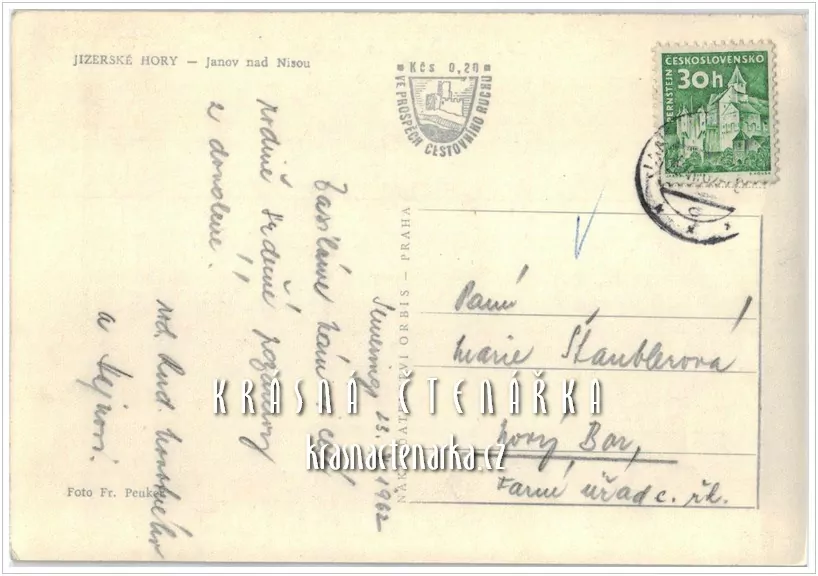 JIZERSKÉ HORY — Janov nad Nisou
Kčs 0,20
VE PROSPĚCH CESTOVNÍHO RUCHU
ČESKOSLOVENSKO
30h
PERNŠTEJN
23. 1962
Zasíláme Vám celé
rodině srdečné pozdravy
z dovolené.
rod. Rud.
a
NAKLADATELSTVÍ ORBIS — PRAHA
Paní
Marie Štaublerová
Nový Bor,
Farní úřad č. řk.
Foto Fr. Peuker
KRÁSNÁ ČTENÁŘKA
krasnactenarka.cz